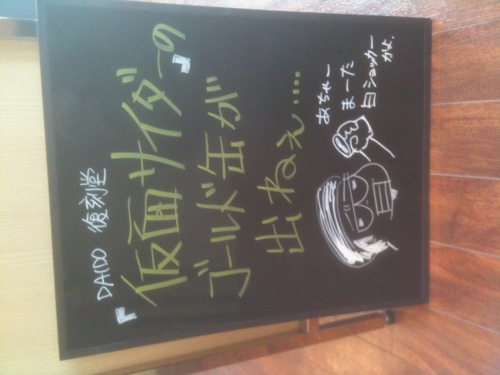 DAIDO 復刻堂
『仮面サイダー』の
ゴールド缶が
出ねぇ・・・・
あちゃー
まーた
白ショッカー
かよ.